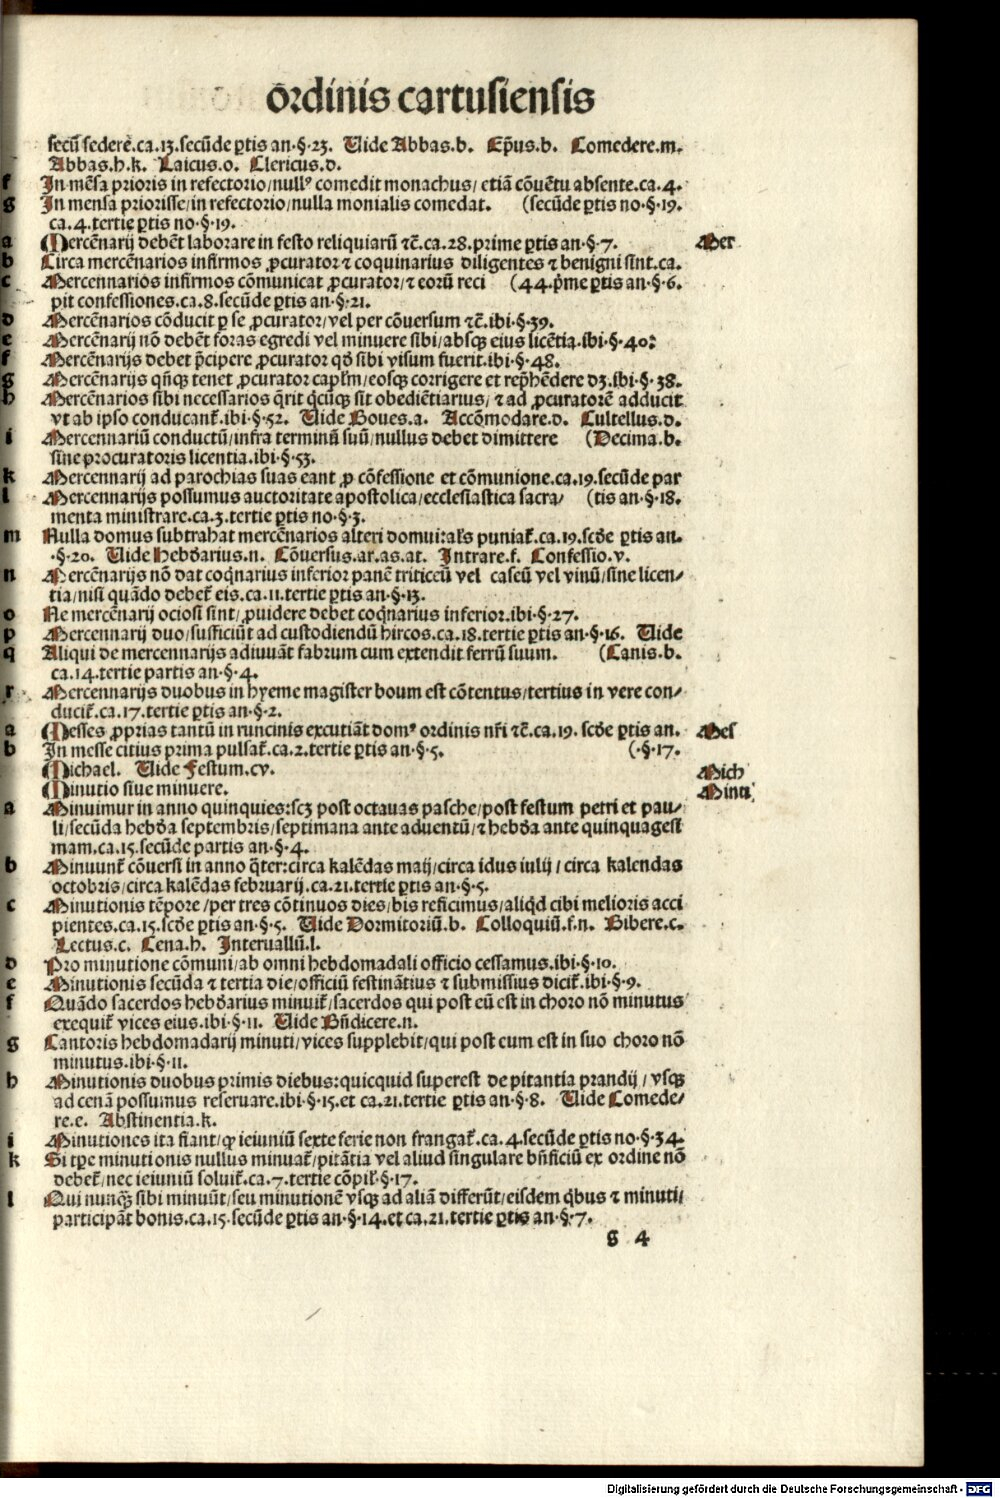 ordinis cartusiensis
secū sederē.ca.13.secūde ꝑtis an.§.23. Uide Abbas.b. Ep̄us.b. Comedere.m.
Abbas.h.k. Laicus.o. Clericus.d.
f In mēsa prioris in refectorio/nullꝰ comedit monachus/etiā cōuētu absente.ca.4.
g In mensa priorisse/in refectorio/nulla monialis comedat. (secūde ꝑtis no.§.19.
ca.4.tertie ꝑtis no.§.19.
a Mercēnarij debēt laborare in festo reliquiarū ⁊c̄.ca.28.prime ꝑtis an.§.7. Mer
b Circa mercēnarios infirmos ꝓcurator ⁊ coquinarius diligentes ⁊ benigni sint.ca.
c Mercennarios infirmos cōmunicat ꝓcurator/⁊ eorū reci (44.p̄me ꝑtis an.§.6.
pit confessiones.ca.8.secūde ꝑtis an.§.21.
d Mercēnarios cōducit ꝑ se ꝓcurator/vel per cōuersum ⁊c̄.ibi.§.39.
e Mercēnarij nō debēt foras egredi vel minuere sibi/absqꝫ eius licētia.ibi.§.40:
f Mercēnarijs debet p̄cipere ꝓcurator qd̄ sibi visum fuerit.ibi.§.48.
g Mercēnarijs qn̄qꝫ tenet ꝓcurator capl̄m/eosqꝫ corrigere et rep̄hēdere dꝫ.ibi.§.38.
h Mercēnarios sibi necessarios q̄rit q̄cūqꝫ sit obediētiarius/⁊ ad ꝓcuratorē adducit
vt ab ipso conducant᷑.ibi.§.52. Uide Boues.a. Accōmodare.d. Cultellus.d.
i Mercennariū conductū/infra terminū suū/nullus debet dimittere (Decima.b.
sine procuratoris licentia.ibi.§.53.
k Mercennarij ad parochias suas eant ꝓ cōfessione et cōmunione.ca.19.secūde par
l Mercennarijs possumus auctoritate apostolica/ecclesiastica sacra/ (tis an.§.18.
menta ministrare.ca.3.tertie ꝑtis no.§.3.
m Nulla domus subtrahat mercēnarios alteri domui:al̓s puniat᷑.ca.19.scd̄e ꝑtis an.
.§.20. Uide Hebdarius.n. Cōuersus.ar.as.at. Intrare.f. Confessio.v.
n Mercēnarijs nō dat coq̄narius inferior panē triticeū vel caseū vel vinū/sine licen/
tia/nisi quādo debet᷑ eis.ca.11.tertie ꝑtis an.§.13.
o Ne mercēnarij ociosi sint/ꝓuidere debet coq̄narius inferior.ibi.§.27.
p Mercennarij duo/sufficiūt ad custodiendū hircos.ca.18.tertie ꝑtis an.§.16. Uide
q Aliqui de mercennarijs adiuuāt fabrum cum extendit ferrū suum. (Canis.b.
ca.14.tertie partis an.§.4.
r Mercennarijs duobus in hyeme magister boum est cōtentus/tertius in vere con/
ducit᷑.ca.17.tertie ꝑtis an.§.2.
a Messes ꝓprias tantū in runcinis excutiāt domꝰ ordinis nr̄i ⁊c̄.ca.19.scd̄e ꝑtis an. Mes
b In messe citius prima pulsat᷑.ca.2.tertie ꝑtis an.§.5. (.§.17.
Michael. Uide Festum.cv. Mich
Minutio siue minuere. Minu
a Minuimur in anno quinquies:scꝫ post octauas pasche/post festum petri et pau/
li/secūda hebd̄a septembris/septimana ante aduentū/⁊ hebd̄a ante quinquagesi
mam.ca.15.secūde partis an.§.4.
b Minuunt᷑ cōuersi in anno q̄ter:circa kalēdas maij/circa idus iulij/circa kalendas
octobris/circa kalēdas februarij.ca.21.tertie ꝑtis an.§.5.
c Minutionis tēpore/per tres cōtinuos dies/bis reficimus/aliqd̄ cibi melioris acci
pientes.ca.15.scd̄e ꝑtis an.§.5. Uide Dormitoriū.b. Colloquiū.f.n. Bibere.c.
Lectus.c. Cena.h. Interuallū.l.
d Pro minutione cōmuni/ab omni hebdomadali officio cessamus.ibi.§.10.
e Minutionis secūda ⁊ tertia die/officiū festināтius ⁊ submissius dicit᷑.ibi.§.9.
f Quādo sacerdos hebdarius minuit᷑/sacerdos qui post eū est in choro nō minutus
exequit᷑ vices eius.ibi.§.11. Uide Bn̄dicere.n.
g Cantoris hebdomadarij minuti/vices supplebit/qui post eum est in suo choro nō
minutus.ibi.§.11.
h Minutionis duobus primis diebus:quicquid superest de pitantia prandij/vsqꝫ
ad cenā possumus reseruare.ibi.§.15.et ca.21.tertie ꝑtis an.§.8. Uide Comede/
re.e. Abstinentia.k.
i Minutiones ita fiant/ꝙ ieiuniū sexte ferie non frangat᷑.ca.4.secūde ꝑtis no.§.34.
k Si tp̄e minutionis nullus minuat᷑/pitātia vel aliud singulare bn̄ficiū ex ordine nō
debet᷑/nec ieiuniū soluit᷑.ca.7.tertie cōpil̓.§.17.
l Qui nunqꝫ̄ sibi minuūt/seu minutionē vsqꝫ ad aliā differūt/eisdem q̄bus ⁊ minuti/
participāt bonis.ca.15.secūde ꝑtis an.§.14.et ca.21.tertie ꝑtis an.§.7.
g 4
Digitalisierung gefördert durch die Deutsche Forschungsgemeinschaft - DFG